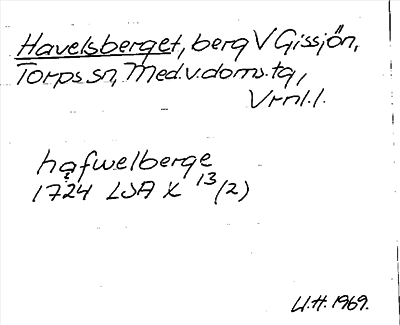 Havelsberget, berg V Gissjön,
Torps sn, Med.v.doms.tg,
Vrnl.l.
hafwelberge
1724 LSA X 13/(2)
U.H. 1969.